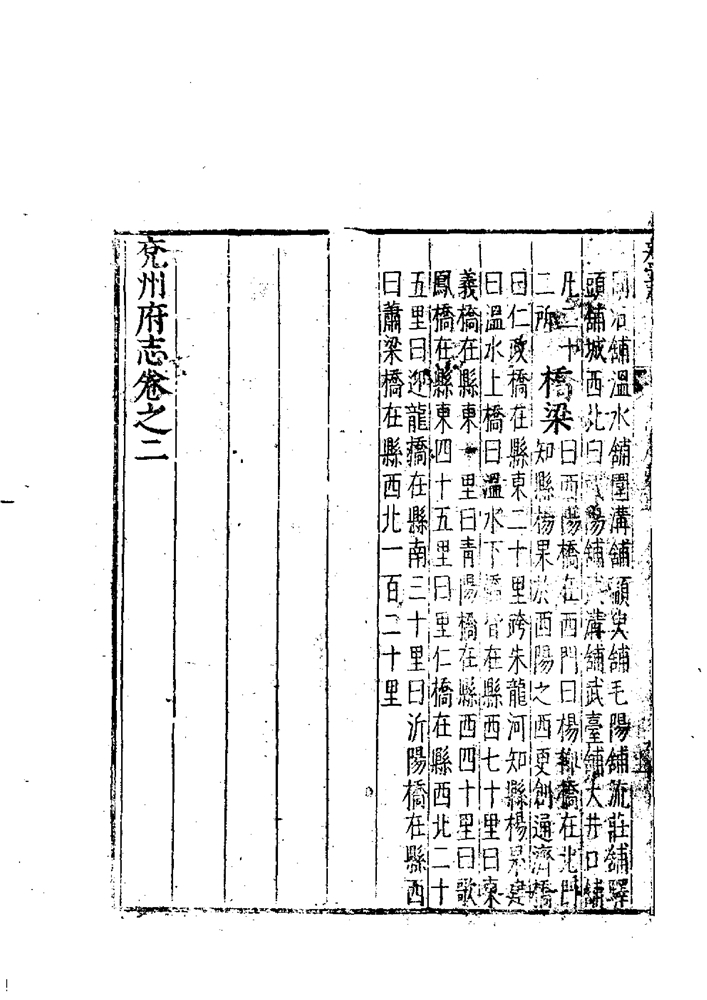 治舖溫水舖圍溝舖顓臾舖毛陽舖流莊舖驛
頭舖城西北曰陽舖溝舖武臺舖大井口舖
凡二十
二所
橋梁
曰西陽橋在西門曰楊橋在北門
知縣楊果於酉陽之西更創通濟橋
曰仁政橋在縣東二十里跨朱龍河知縣楊果建
曰溫水上橋曰溫水下橋皆在縣西七十里曰東
義橋在縣東一里曰青陽橋在縣西四十里曰歌
鳳橋在縣東四十五里曰里仁橋在縣西北二十
五里曰迎龍橋在縣南三十里曰沂陽橋在縣西
曰蕭梁橋在縣西北一百二十里
兗州府志卷之二